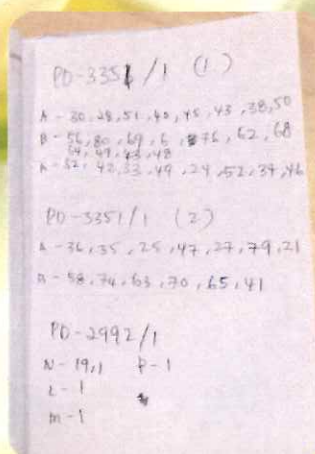 PD-3351/1 (1)
A - 30, 28, 51, 40, 45, 43, 38, 50
B - 56, 80, 69, 6, 76, 62, 68
64, 49, 43, 48
A - 32, 42, 33, 49, 24, 52, 37, 46
PD-3351/1 (2)
A - 36, 35, 25, 47, 27, 79, 21
B - 58, 74, 63, 70, 65, 41
PD-2992/1
N - 19,1 P-1
L - 1
M - 1